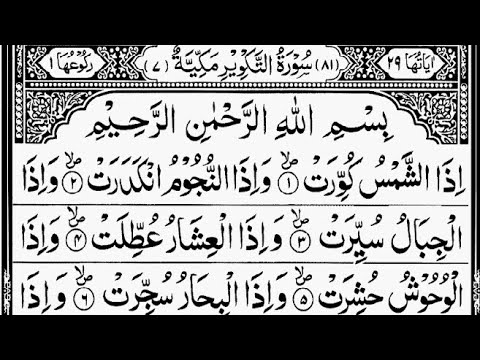 اٰیَاتُهَا ٢٩ (٨١) سُوْرَةُ التَّكْوِيْرِ مَكِّيَّةٌ (٧) رُكُوْعُهَا ١
بِسْمِ اللّٰهِ الرَّحْمٰنِ الرَّحِيْمِ
اِذَا الشَّمْسُ كُوِّرَتْ ۙ ١ وَاِذَا النُّجُوْمُ انْكَدَرَتْ ۙ ٢ وَاِذَا
الْجِبَالُ سُيِّرَتْ ۙ ٣ وَاِذَا الْعِشَارُ عُطِّلَتْ ۙ ٤ وَاِذَا
الْوُحُوْشُ حُشِرَتْ ۙ ٥ وَاِذَا الْبِحَارُ سُجِّرَتْ ۙ ٦ وَاِذَا